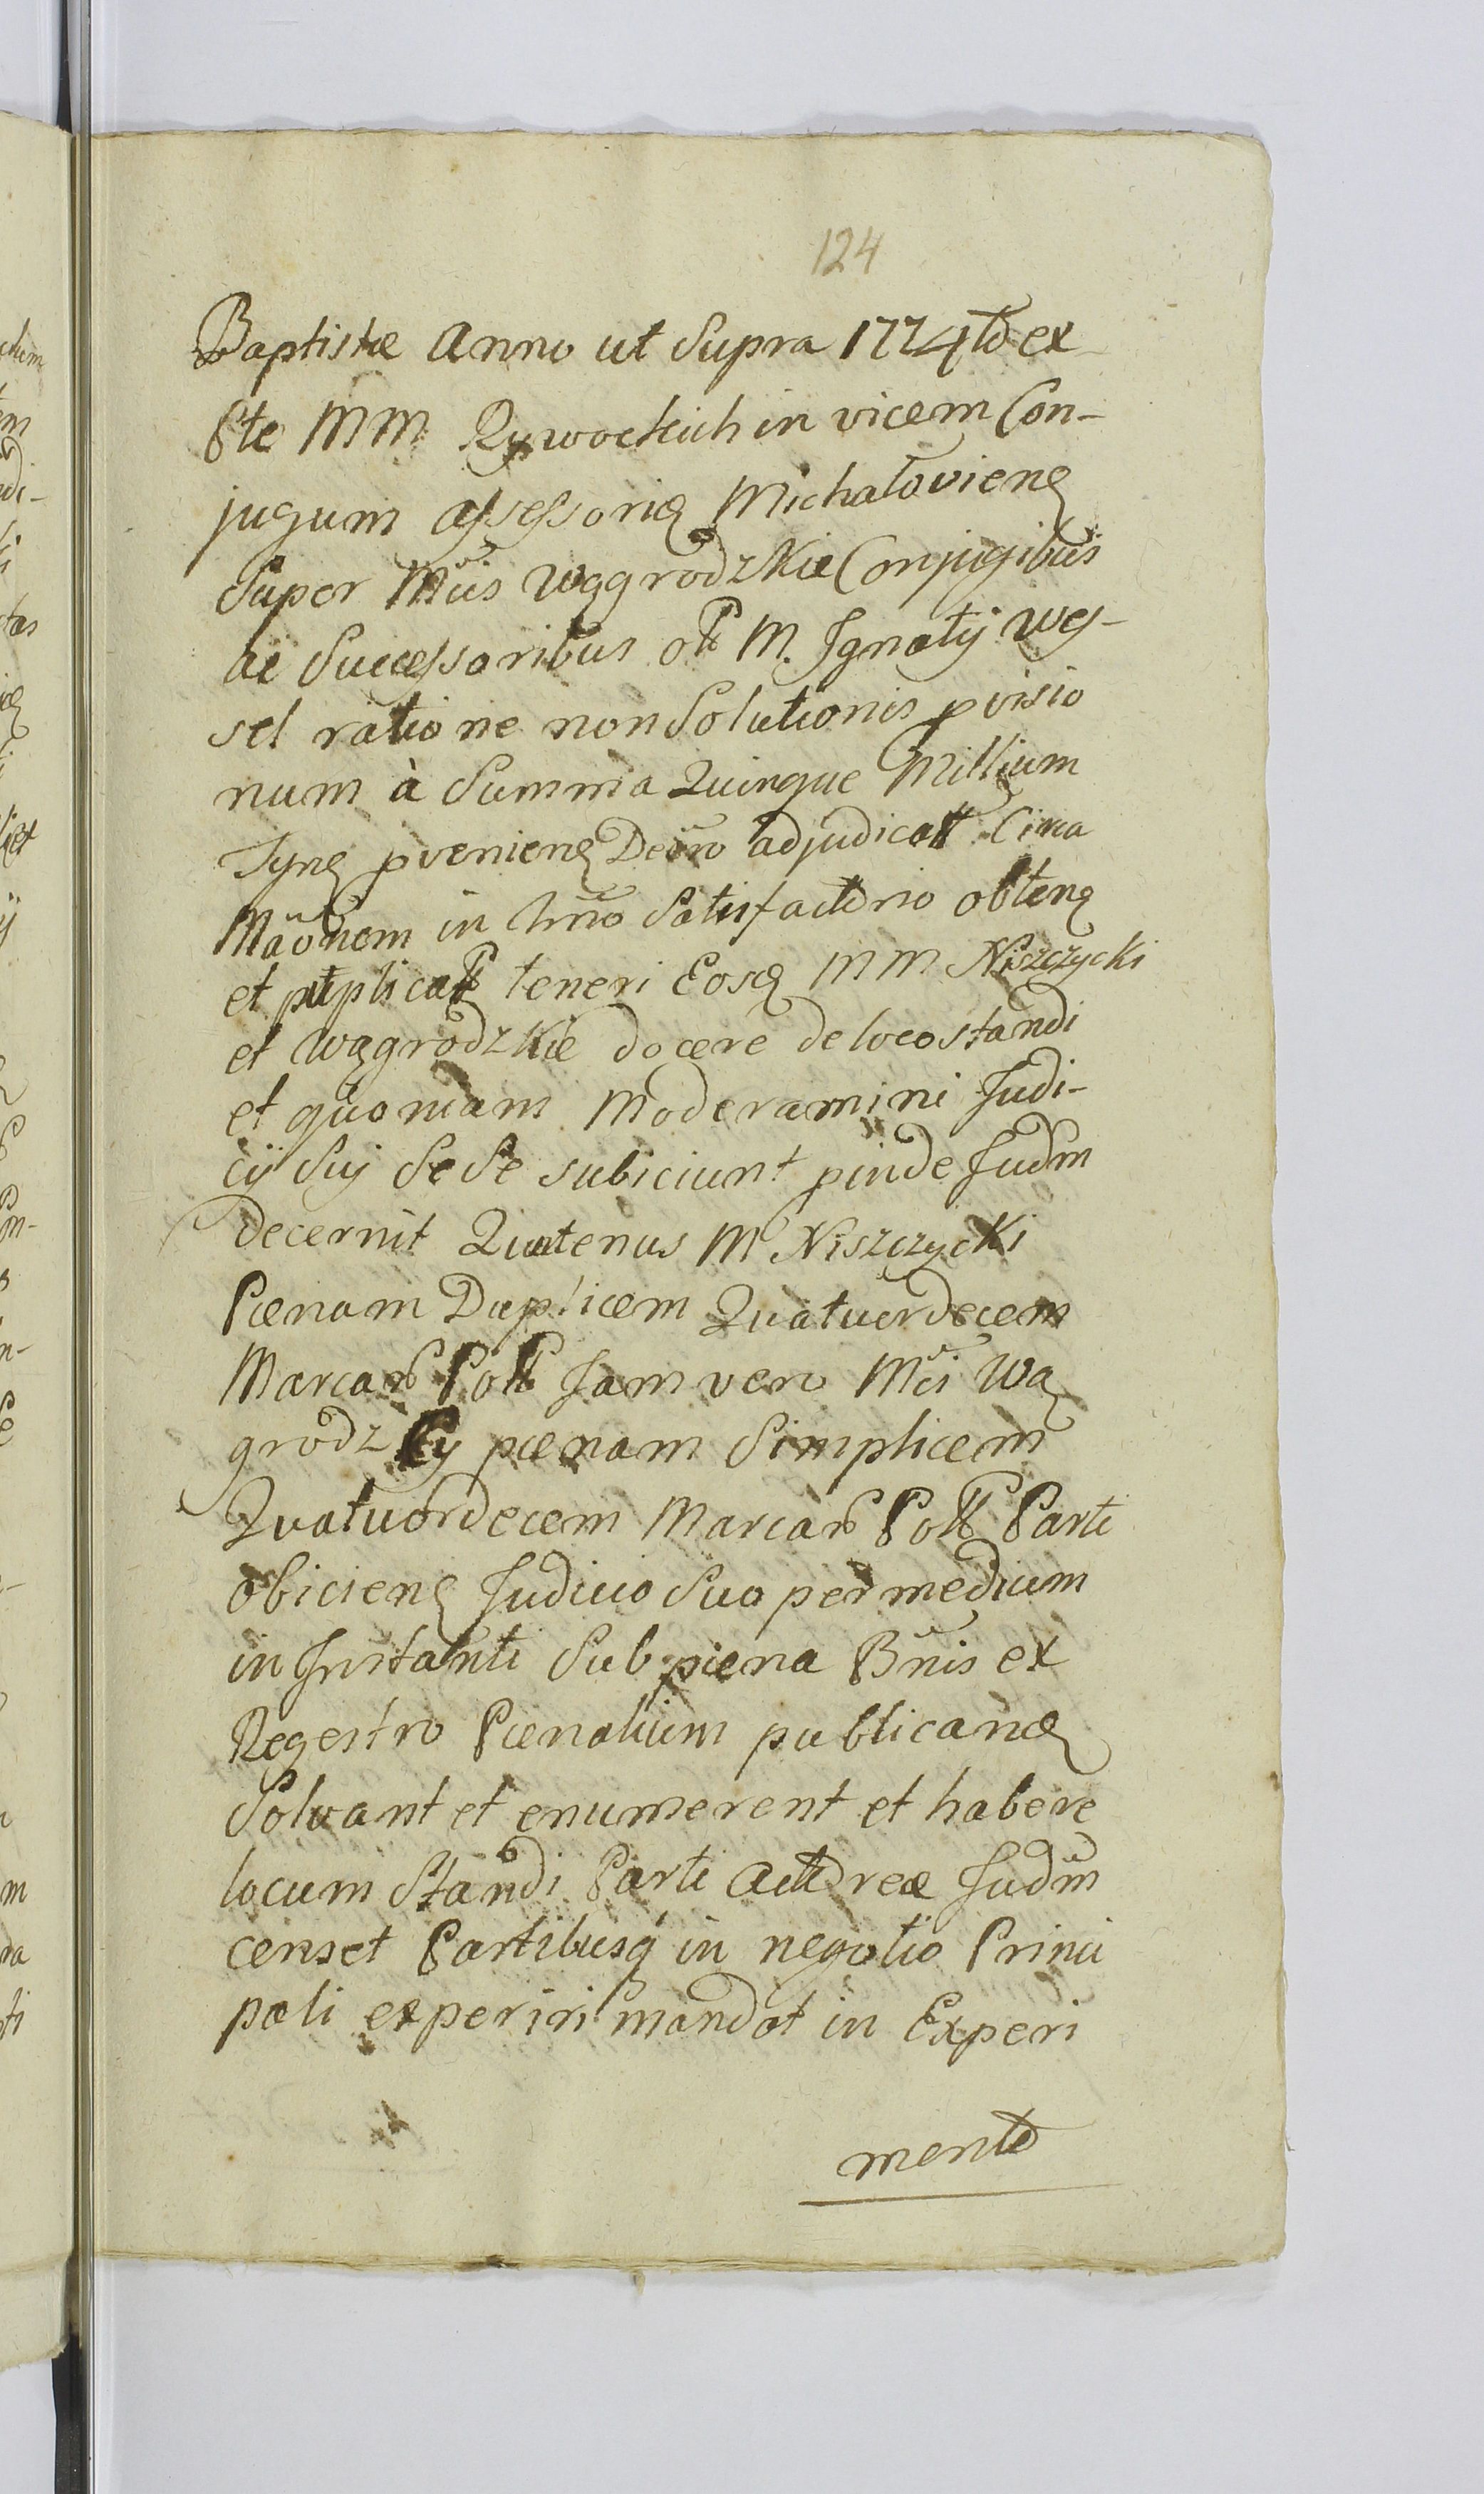 124
Baptistæ Anno ut Supra 1774to ex
Pte MM Rywockich in vicem Con-
jugum assessoriæ Michałovienę
Super Mcis Wągrodzkie Conjugibus
ac Successoribus olt M. Ignatij Wes-
sel ratione non Solutionis pvisio
num à Summa Quinque Millium
Tynę pvenienę Decro adjudicatt Circa
in Satisfactorio obtenę
et teneri Eosę MM Niszczycki
et Wągrodzkie docere de loco standi
et quoniam Moderamini Judi-
cij Sui Se Se subiciunt pinde Judm
decernit Quatenus M Niszczycki
Pænam Duplicem Quatuordecem
Marcar Poll Jam vero Mci Wą
grodzcy pænam Simplicem
Quatuordecem Marcar Poll Parti
obicienę Judicio Suo per medium
in Instanti Sub pæna Bnis ex
Regestro Pænalium publicanę
Solvant et enumerent et habere
locum Standi Parti Actoreæ Judm
censet Partibusq in negotio Princi
pali experiri mandat in Experi
mento